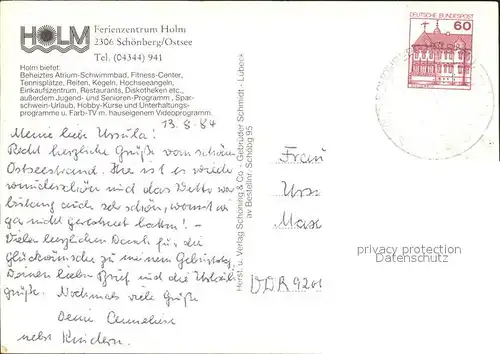 HOLM
Ferienzentrum Holm
2306 Schönberg/Ostsee
Tel. (04344) 941
Holm bietet:
Beheiztes Atrium-Schwimmbad, Fitness-Center,
Tennisplätze, Reiten, Kegeln, Hochseeangeln,
Einkaufszentrum, Restaurants, Diskotheken etc.,
außerdem Jugend- und Senioren-Programm, Spar-
schwein-Urlaub, Hobby-Kurse und Unterhaltungs-
programme u. Farb-TV m. hauseigenem Videoprogramm.
13. 8. 84
Meine liebe Ursula!
Recht herzliche Grüße vom schönen
Ostseestrand. Hier ist es wieder
wunderschön und das Wetter war
bislang auch sehr schön, womit wir
gar nicht gerechnet hatten! –
Vielen herzlichen Dank für die
Glückwünsche zu meinem Geburtstag,
Deinen lieben Brief und die Urlaubs-
grüße. Nochmals viele Grüße
Deine Anneliese
nebst Kindern.
Herst. u. Verlag Schöning & Co · Gebrüder Schmidt · Lübeck
Bestellnr. Schöbg 95
DEUTSCHE BUNDESPOST
60
Frau
Urs
Max
DDR 9201
privacy protection
Datenschutz